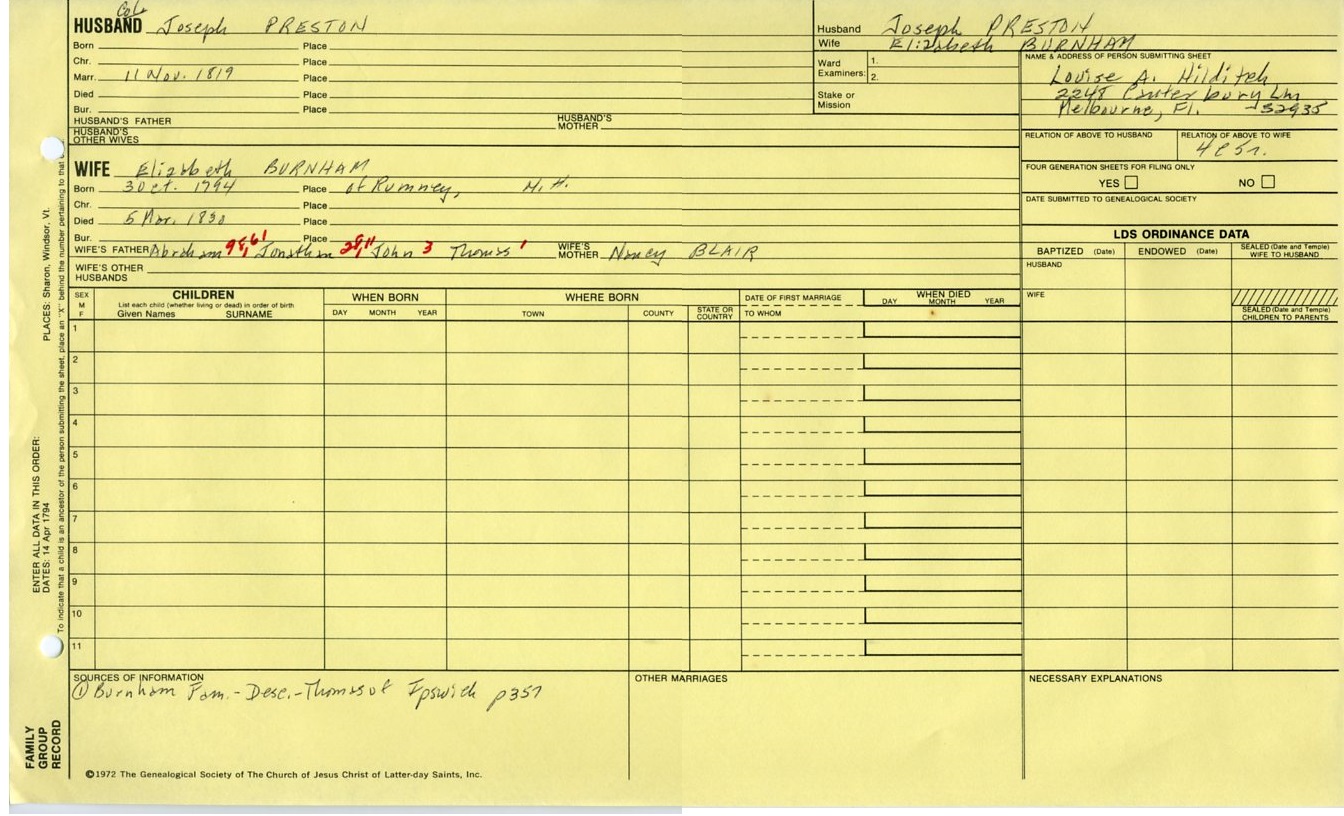 Col.
HUSBAND Joseph PRESTON
Born Place
Chr. Place
Marr. 11 Nov. 1819 Place
Died Place
Bur. Place
HUSBAND'S FATHER HUSBAND'S MOTHER
HUSBAND'S OTHER WIVES
Husband Joseph PRESTON
Wife Elizabeth BURNHAM
Ward Examiners: 1.
2.
Stake or Mission
NAME & ADDRESS OF PERSON SUBMITTING SHEET
Louise A. Hilditch
2248 Canterbury Ln
Melbourne, Fl. 32935
RELATION OF ABOVE TO HUSBAND RELATION OF ABOVE TO WIFE
4c5r.
FOUR GENERATION SHEETS FOR FILING ONLY
YES NO
DATE SUBMITTED TO GENEALOGICAL SOCIETY
WIFE Elizabeth BURNHAM
Born 3 Oct. 1794 Place of Rumney, N.H.
Chr. Place
Died 5 Mar. 1830 Place
Bur. Place
WIFE'S FATHER Abraham Jonathan John 3 Thomas 1 WIFE'S MOTHER Nancy BLAIR
WIFE'S OTHER HUSBANDS
LDS ORDINANCE DATA
BAPTIZED (Date) ENDOWED (Date) SEALED (Date and Temple) WIFE TO HUSBAND
HUSBAND
WIFE
SEALED (Date and Temple) CHILDREN TO PARENTS
SEX M F
CHILDREN
List each child (whether living or dead) in order of birth
Given Names SURNAME
WHEN BORN
DAY MONTH YEAR
WHERE BORN
TOWN COUNTY STATE OR COUNTRY
DATE OF FIRST MARRIAGE
TO WHOM
WHEN DIED
DAY MONTH YEAR
1
2
3
4
5
6
7
8
9
10
11
SOURCES OF INFORMATION
① Burnham Fam.-Desc.-Thomas of Ipswich p357
OTHER MARRIAGES
NECESSARY EXPLANATIONS
©1972 The Genealogical Society of The Church of Jesus Christ of Latter-day Saints, Inc.
FAMILY GROUP RECORD
ENTER ALL DATA IN THIS ORDER:
DATES: 14 Apr 1794
PLACES: Sharon, Windsor, Vt.
To indicate that a child is an ancestor of the person submitting the sheet, place an "X" behind the number pertaining to that